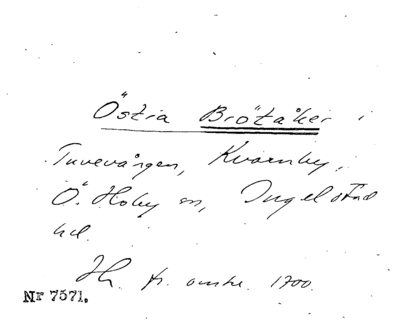 Östra Brötåker i
Tuvevången, Kvarnby,
Ö. Hoby sn, Ingelstad
hd.
Hr. fr. omkr. 1700.
Nr 7571.